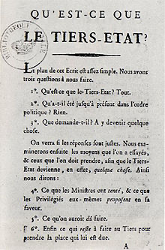 QU'EST-CE QUE
LE TIERS-ETAT?
Le plan de cet Ecrit est assez simple. Nous avons
trois questions à nous faire.
1°. Qu'est-ce que le Tiers-Etat? Tout.
2°. Qu'a-t-il été jusqu'à présent dans l'ordre
politique? Rien.
3°. Que demande-t-il? A y devenir quelque
chose.
On verra si les réponses sont justes. Nous
examinerons ensuite les moyens que l'on a essayés,
& ceux que l'on doit prendre, afin que le Tiers-Etat
devienne, en effet, quelque chose. Ainsi
nous dirons:
4°. Ce que les Ministres ont tenté, & ce que
les Privilégiés eux-mêmes proposent en sa
faveur.
5°. Ce qu'on auroit dû faire.
6°. Enfin ce qui reste à faire au Tiers pour
prendre la place qui lui est due.
A